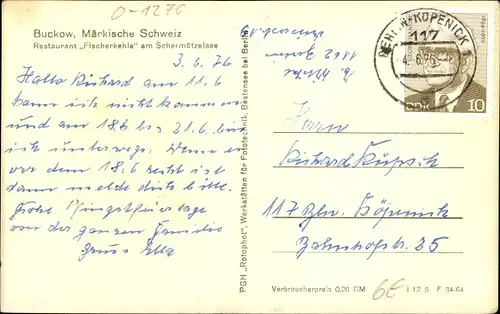 O-1276
Buckow, Märkische Schweiz
Restaurant „Fischerkehle" am Schermützelsee
3.6.76
Hallo Richard am 11.6
kann ich nicht kommen
und am 18.6 bis 21.6 bin
ich unterwegs. Wenn es
vor dem 18.6 recht ist
dann melde dich bitte.
Frohe Pfingstfeiertage
von der ganzen Familie
Gruss Ella
PGH „Rotophot", Werkstätten für Fototechnik, Bestensee bei Berlin
1162 Berlin
BERLIN-KÖPENICK 1
117
4.-6.76
DDR
10
Herrn
Richard Kupsch
117 Bln. Köpenick
Bahnhofstr. 25
Verbraucherpreis 0,20 DM
6E
I 12 5 F 34-64